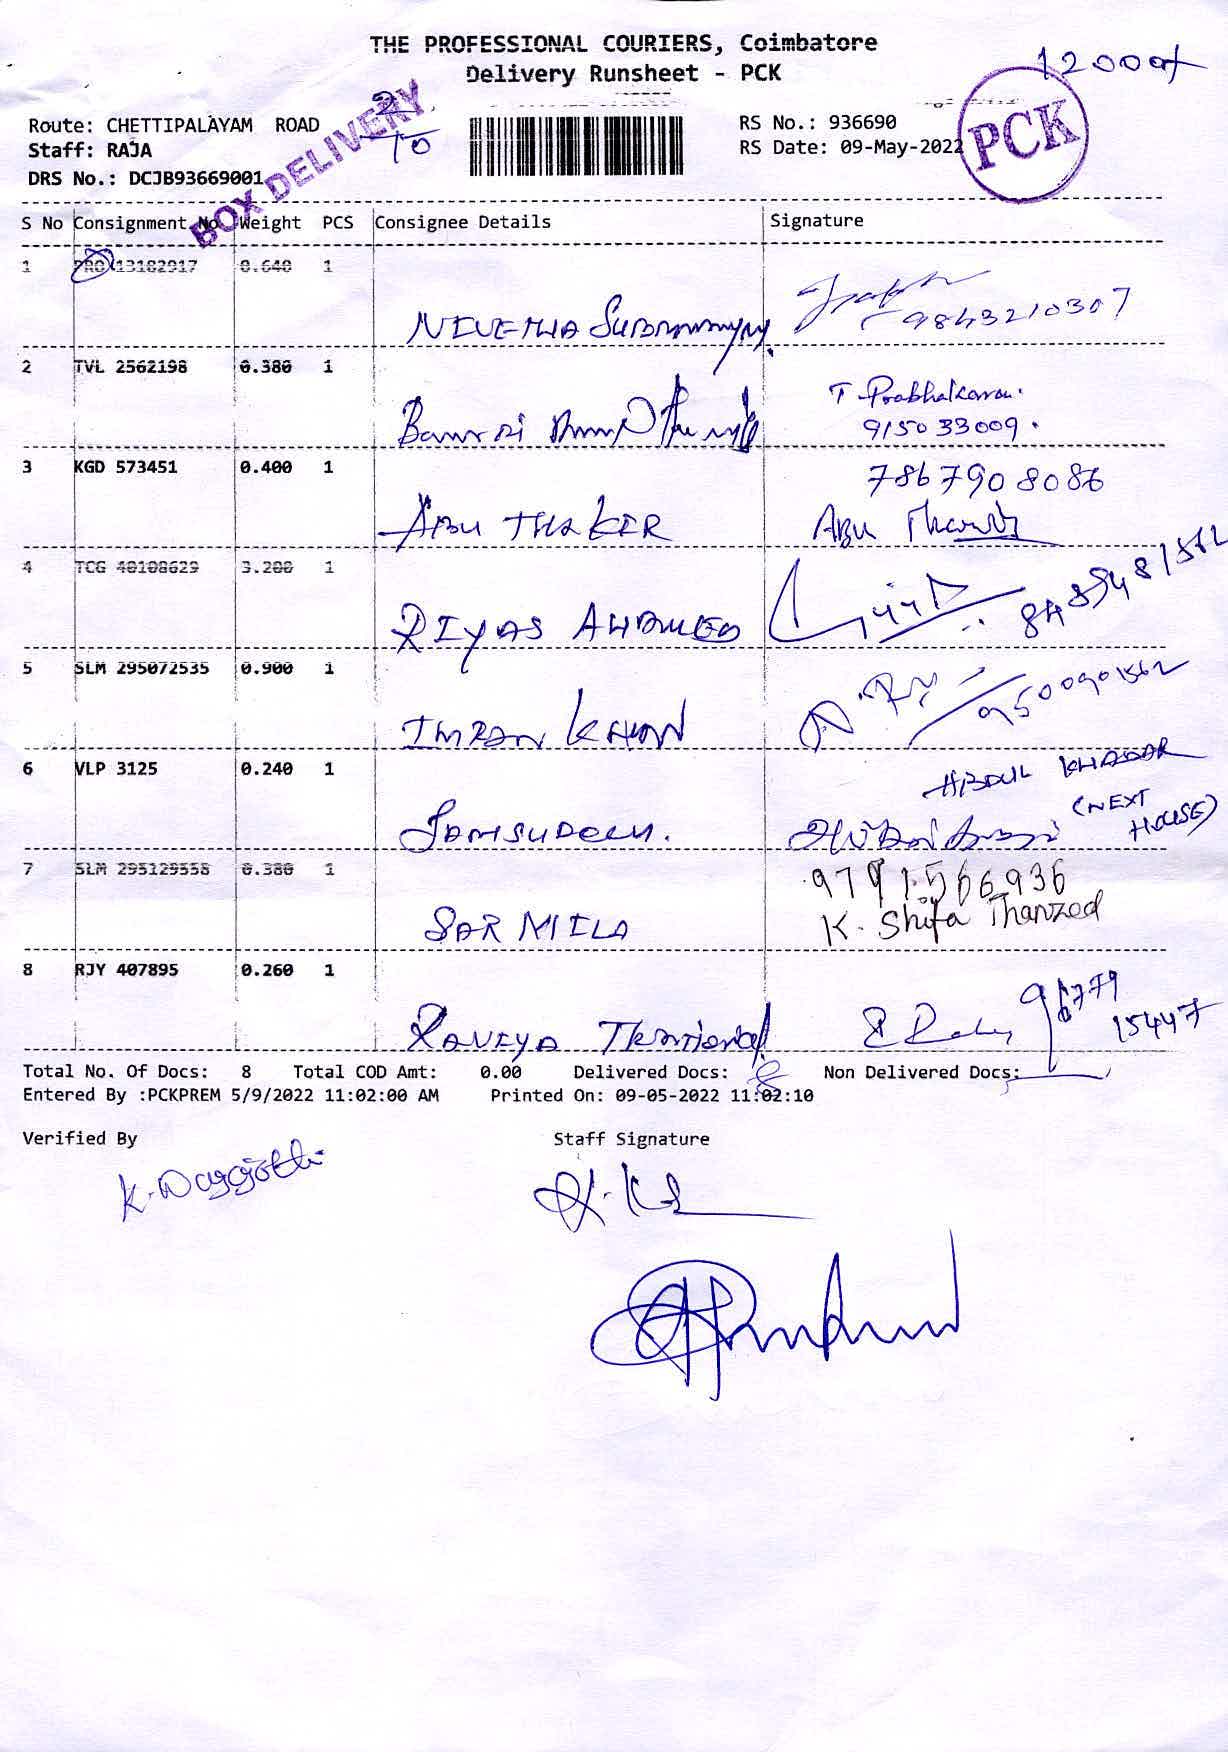 THE PROFESSIONAL COURIERS, Coimbatore
Delivery Runsheet - PCK
12000/-
Route: CHETTIPALAYAM ROAD
Staff: RAJA
DRS No.: DCJB93669001
BOX DELIVERY
RS No.: 936690
RS Date: 09-May-2022
PCK
S No Consignment No Weight PCS Consignee Details Signature
1 PRO 13182917 0.640 1
9843210307
2 TVL 2562198 0.380 1
T. Prabhakaran.
915033009.
3 KGD 573451 0.400 1
7867908086
ABU THAKER ABU
4 TCG 40108629 3.200 1
RIYAS AHAMED
5 SLM 295072535 0.900 1
9500901562
IMRAN KHAN
6 VLP 3125 0.240 1
ABDUL KHADAR
(NEXT HOUSE)
JAMSUDEEN.
7 SLM 295129558 0.380 1
9791566936
SARMILA K. Shifa Thanzed
8 RJY 407895 0.260 1
96779
15447
Total No. Of Docs: 8 Total COD Amt: 0.00 Delivered Docs: 8 Non Delivered Docs:
Entered By :PCKPREM 5/9/2022 11:02:00 AM Printed On: 09-05-2022 11:02:10
Verified By Staff Signature